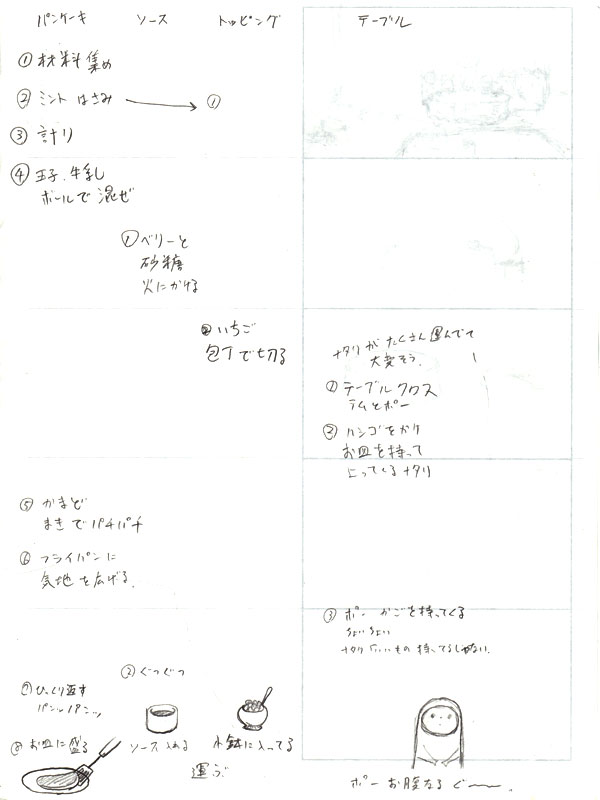 パンケーキ ソース トッピング テーブル
① 材料集め
② ミント はさみ → ①
③ 計り
④ 玉子、牛乳
ボールで 混ぜ
① ベリーと
砂糖
火にかける
② いちご
包丁で切る
ナタリがたくさん運んでて
大変そう。
① テーブルクロス
ラムとポー
② ハシゴをかけ
お皿を持って
上ってくるナタリ
⑤ かまど
まきでパチパチ
⑥ フライパンに
気地を広げる。
③ ポー かごを持ってくる
ちょいちょい
ナタリ「いいもの持ってるじゃない。
② ぐつぐつ
⑦ ひっくり返す
パンパンッ
⑧ お皿に盛る
ソース入れる
小鉢に入ってる
運ぶ
ポー お腹なる ぐ〜〜。